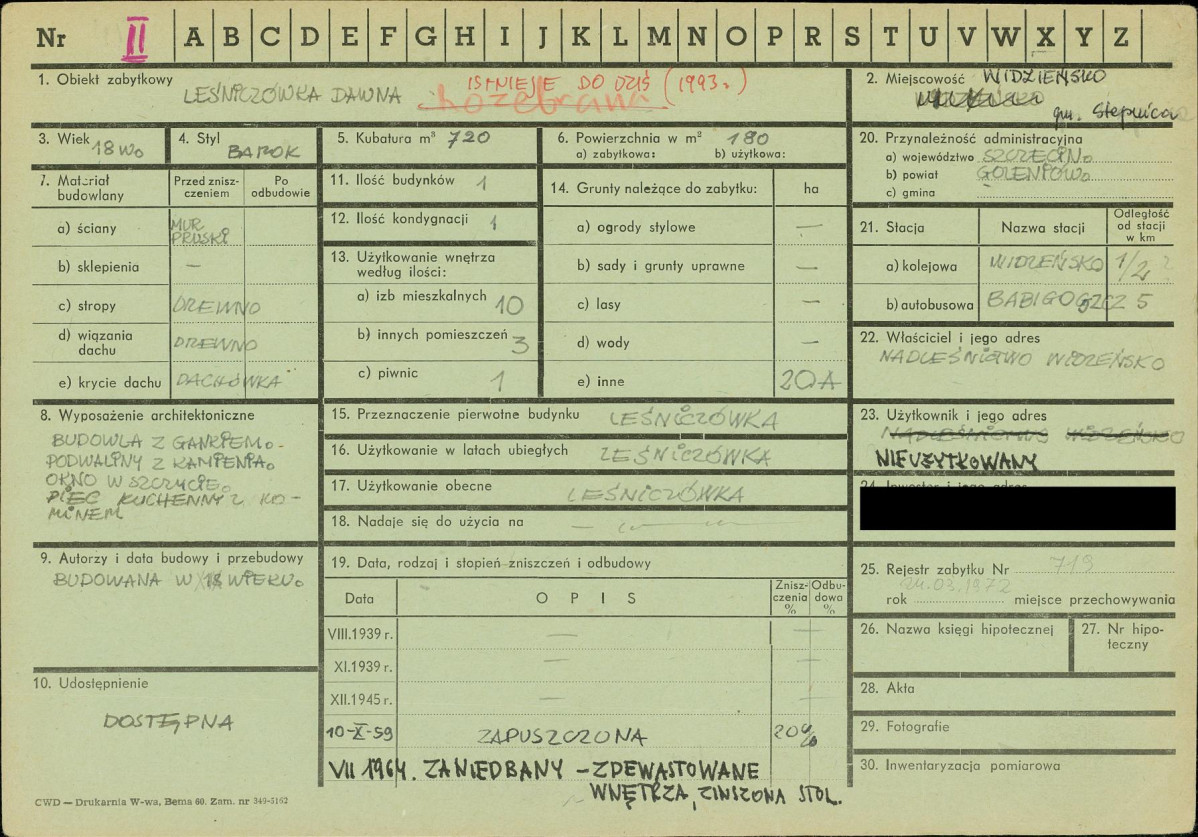 Nr II A B C D E F G H I J K L M N O P R S T U V W X Y Z
1. Obiekt zabytkowy LEŚNICZÓWKA DAWNA
ISTNIEJE DO DZIŚ (1993r.)
rozebrana
2. Miejscowość WIDZIEŃSKO
gm. Stepnica
3. Wiek 18 W.
4. Styl BAROK
5. Kubatura m³ 720
6. Powierzchnia w m² 180
a) zabytkowa: b) użytkowa:
7. Materiał budowlany
Przed zniszczeniem
Po odbudowie
a) ściany MUR PRUSKI
b) sklepienia —
c) stropy DREWNO
d) wiązania dachu DREWNO
e) krycie dachu DACHÓWKA
8. Wyposażenie architektoniczne
BUDOWLA Z GANKIEM.
PODWALINY Z KAMIENIA.
OKNO W SZCZYCIE.
PIEC KUCHENNY Z KO-
MINEM
9. Autorzy i data budowy i przebudowy
BUDOWANA W 18 WIEKU.
10. Udostępnienie
DOSTĘPNA
11. Ilość budynków 1
12. Ilość kondygnacji 1
13. Użytkowanie wnętrza
według ilości:
a) izb mieszkalnych 10
b) innych pomieszczeń 3
c) piwnic 1
14. Grunty należące do zabytku: ha
a) ogrody stylowe —
b) sady i grunty uprawne —
c) lasy —
d) wody —
e) inne 20A
15. Przeznaczenie pierwotne budynku LEŚNICZÓWKA
16. Użytkowanie w latach ubiegłych LEŚNICZÓWKA
17. Użytkowanie obecne LEŚNICZÓWKA
18. Nadaje się do użycia na —
19. Data, rodzaj i stopień zniszczeń i odbudowy
Data OPIS Zniszczenia % Odbudowa %
VIII.1939 r. — —
XI.1939 r. — —
XII.1945 r. — —
10-X-59 ZAPUSZCZONA 20%
VII 1964. ZANIEDBANY – ZDEWASTOWANE
WNĘTRZA, ZNISZONA STOL.
20. Przynależność administracyjna
a) województwo SZCZECIN.
b) powiat GOLENIOW.
c) gmina
21. Stacja
Nazwa stacji
Odległość od stacji w km
a) kolejowa WIDZEŃSKO 1/2 ?
b) autobusowa BABIGOSZCZ 5
22. Właściciel i jego adres
NADLEŚNICTWO WIDZEŃSKO
23. Użytkownik i jego adres
NADLEŚNICTWO WIDZEŃSKO
NIEUŻYTKOWANY
25. Rejestr zabytku Nr 719
24.03.1972
rok miejsce przechowywania
26. Nazwa księgi hipotecznej
27. Nr hipoteczny
28. Akta
29. Fotografie
30. Inwentaryzacja pomiarowa
CWD — Drukarnia W-wa, Bema 60. Zam. nr 349-5162